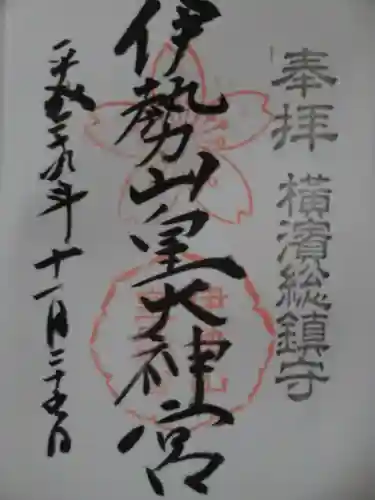 奉拝
横濱総鎮守
伊勢山皇大神宮
平成二十九年十一月二十五日